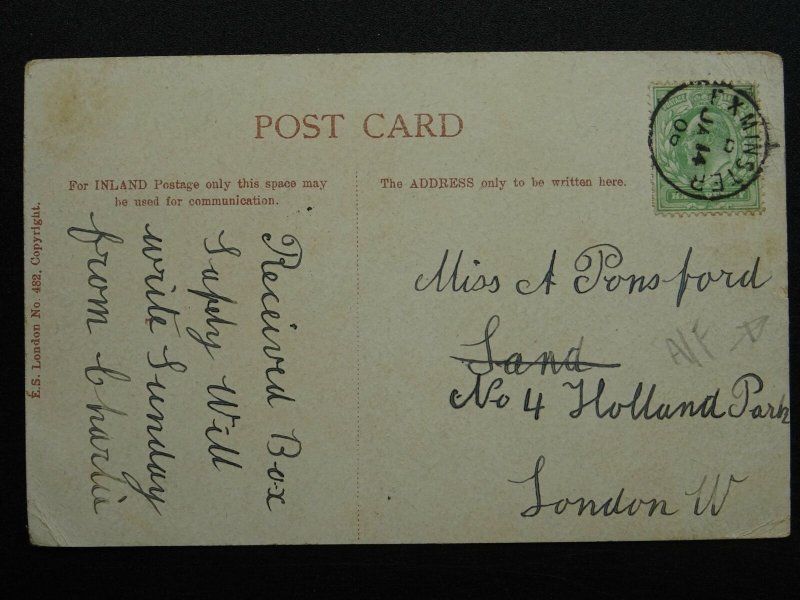 POST CARD
For INLAND Postage only this space may
be used for communication.
The ADDRESS only to be written here.
E.S. London No. 482. Copyright.
Received Box
Safely Will
write Sunday
from Charlie
EXMINSTER
JA 14
06
Miss A Ponsford
Sand
No 4 Holland Park
London W
A/F